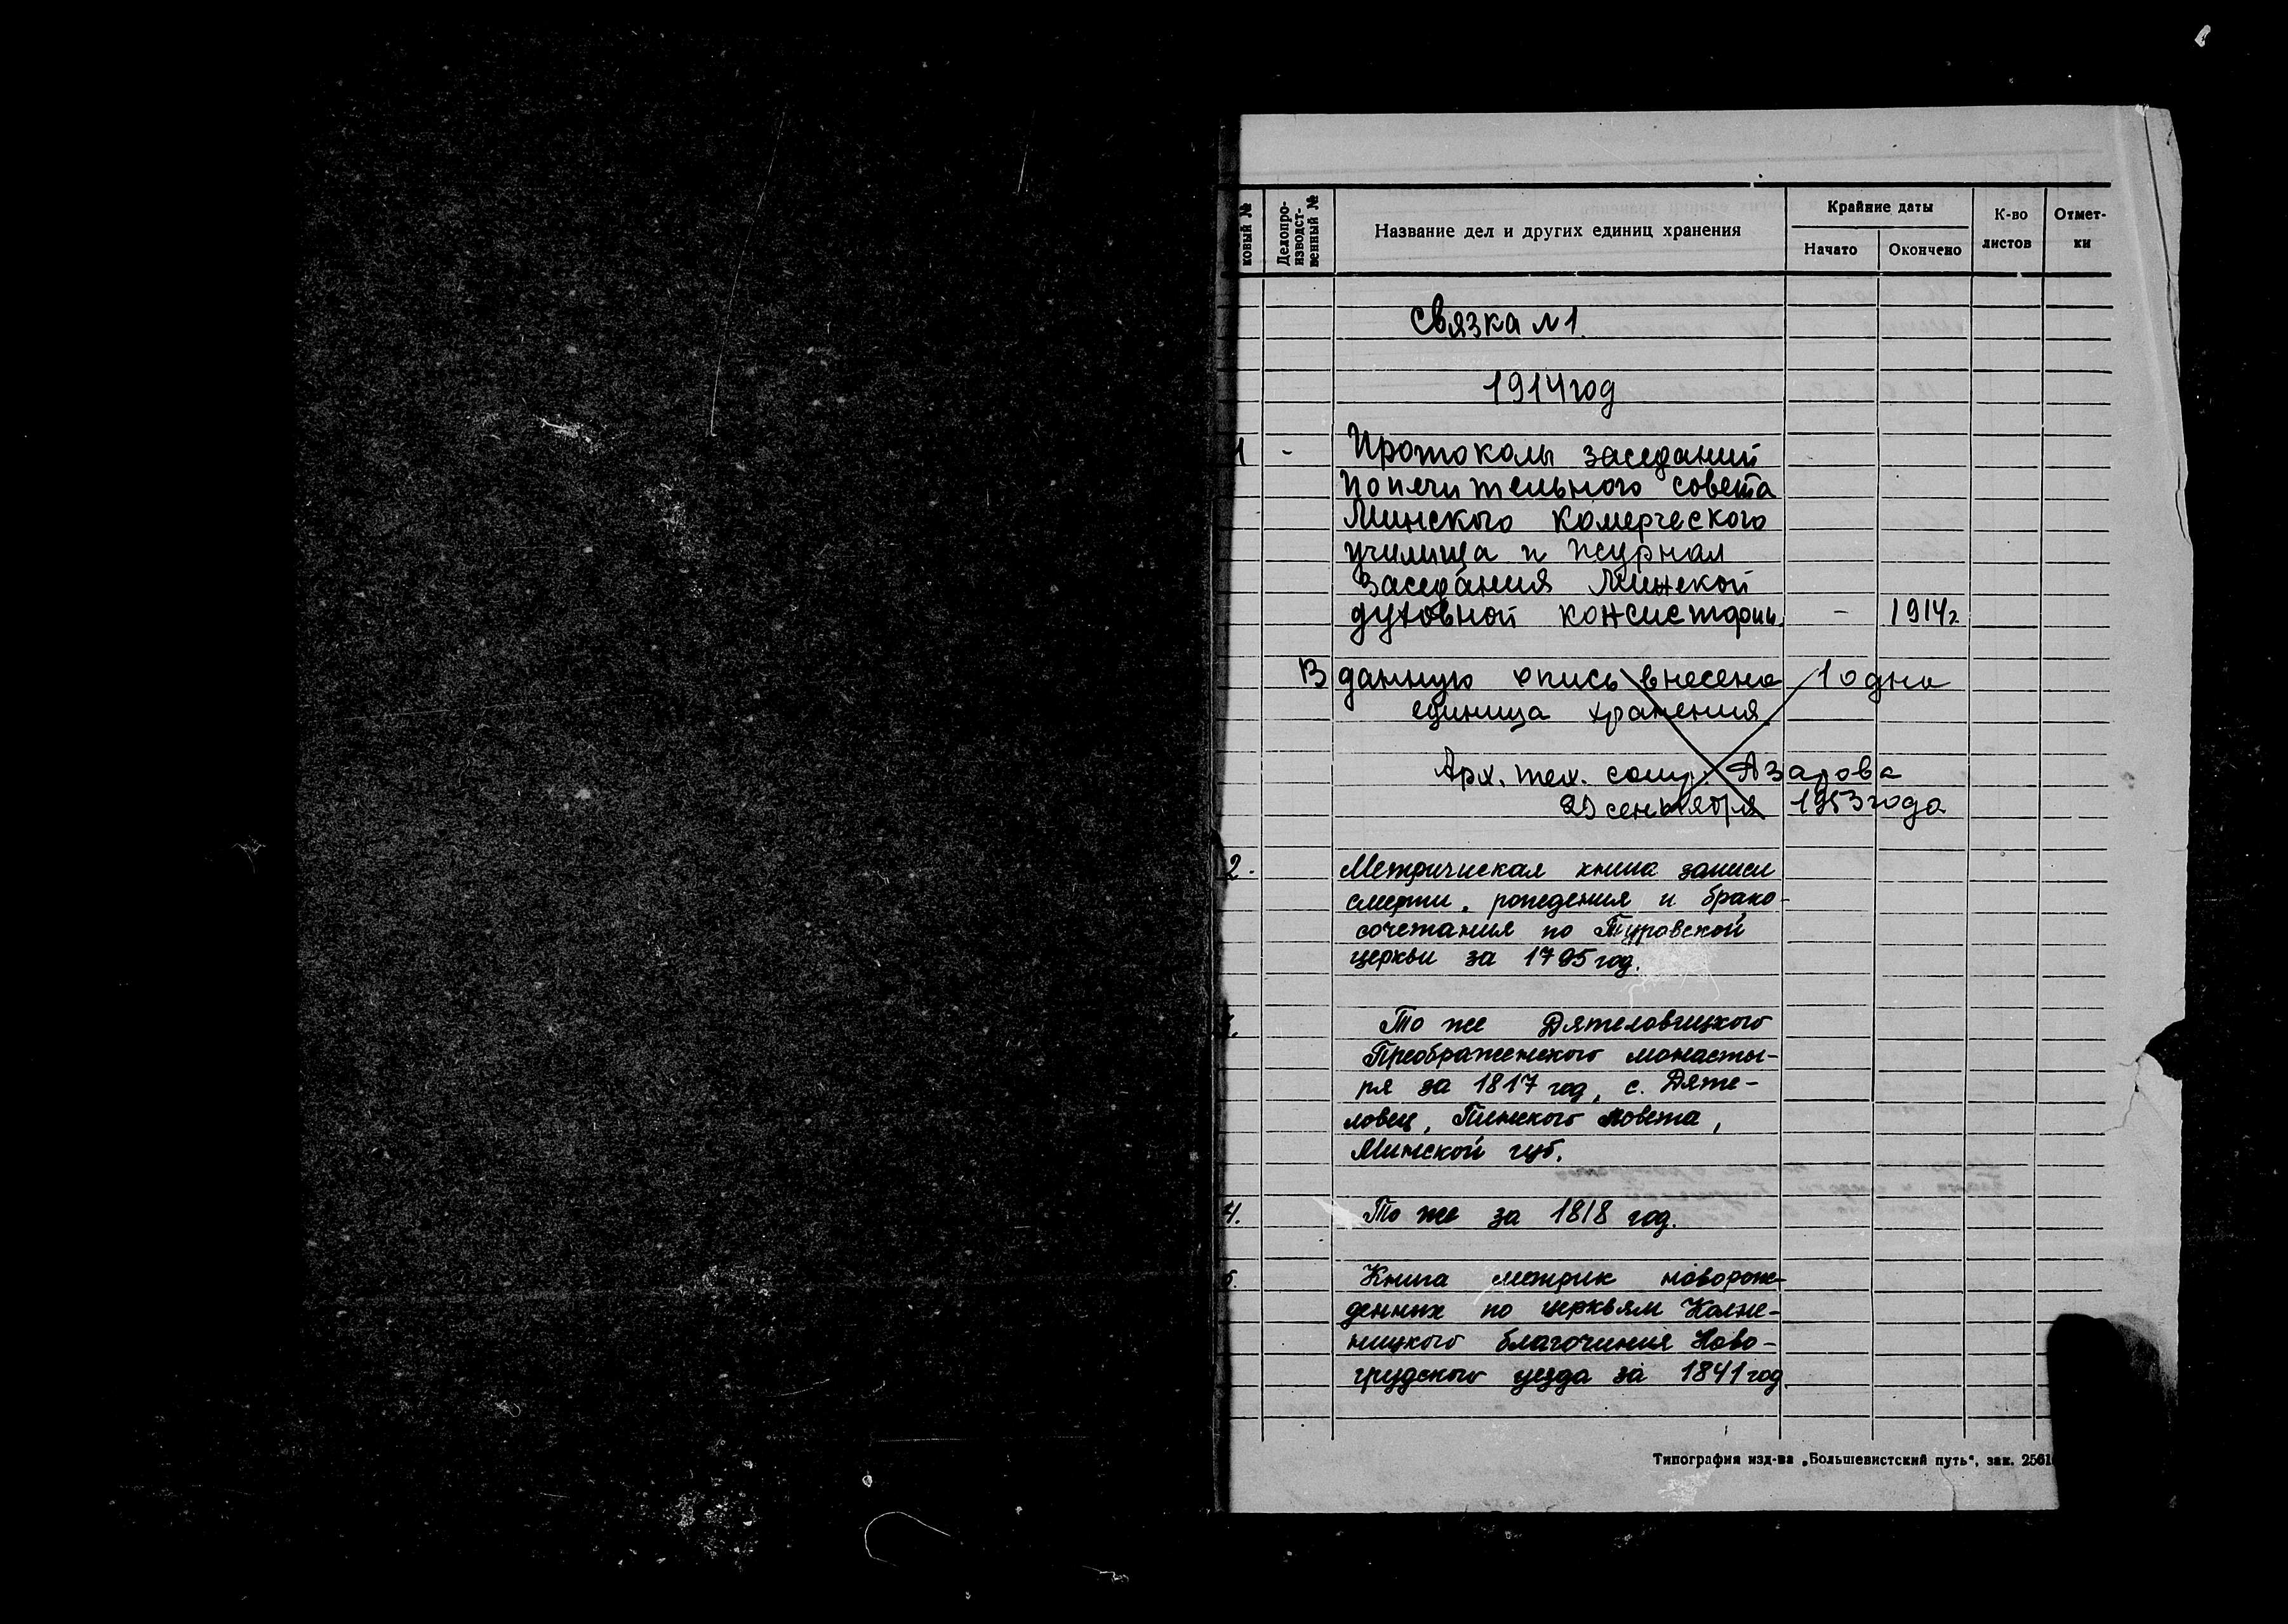 ковый №
Делопро-
изводст-
венный №
Название дел и других единиц хранения
Крайние даты
Начато
Окончено
К-во
листов
Отмет-
ки
Связка № 1.
1914 год
1 - Протоколы заседаний
попечительного совета
Минского комерческого
училища и журнал
заседания Минской
духовной консистории. - 1914г.
В данную опись внесена 1 одна
единица хранения.
Арх. тех. сотр. Азарова
29 сентября 1953 года
2. Метрическая книга записи
смерти, рождения и брако-
сочетания по Туровской
церкви за 1795 год.
3. То же Дятеловицкого
Преображенского монасты-
ря за 1817 год, с. Дяте-
ловец, Пинского повета,
Минской губ.
4. То же за 1818 год.
5. Книга метрикноворож-
денных по церквям
ницкого благочиния Ново-
грудского уезда за 1841 год.
Типография изд-ва „Большевистский путь“, зак. 2561